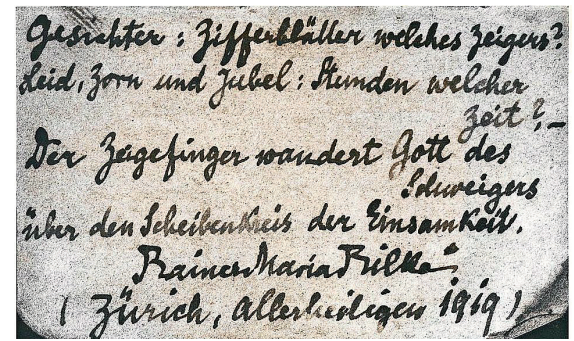 Gesichter : Zifferblätter welches Zeigers?
Leid, Zorn und Jubel : Stunden welcher
Zeit?, –
Der Zeigefinger wandert Gott des
Schweigers
über den Scheibenkreis der Einsamkeit.
Rainer Maria Rilke
( Zürich, Allerheiligen 1919 )